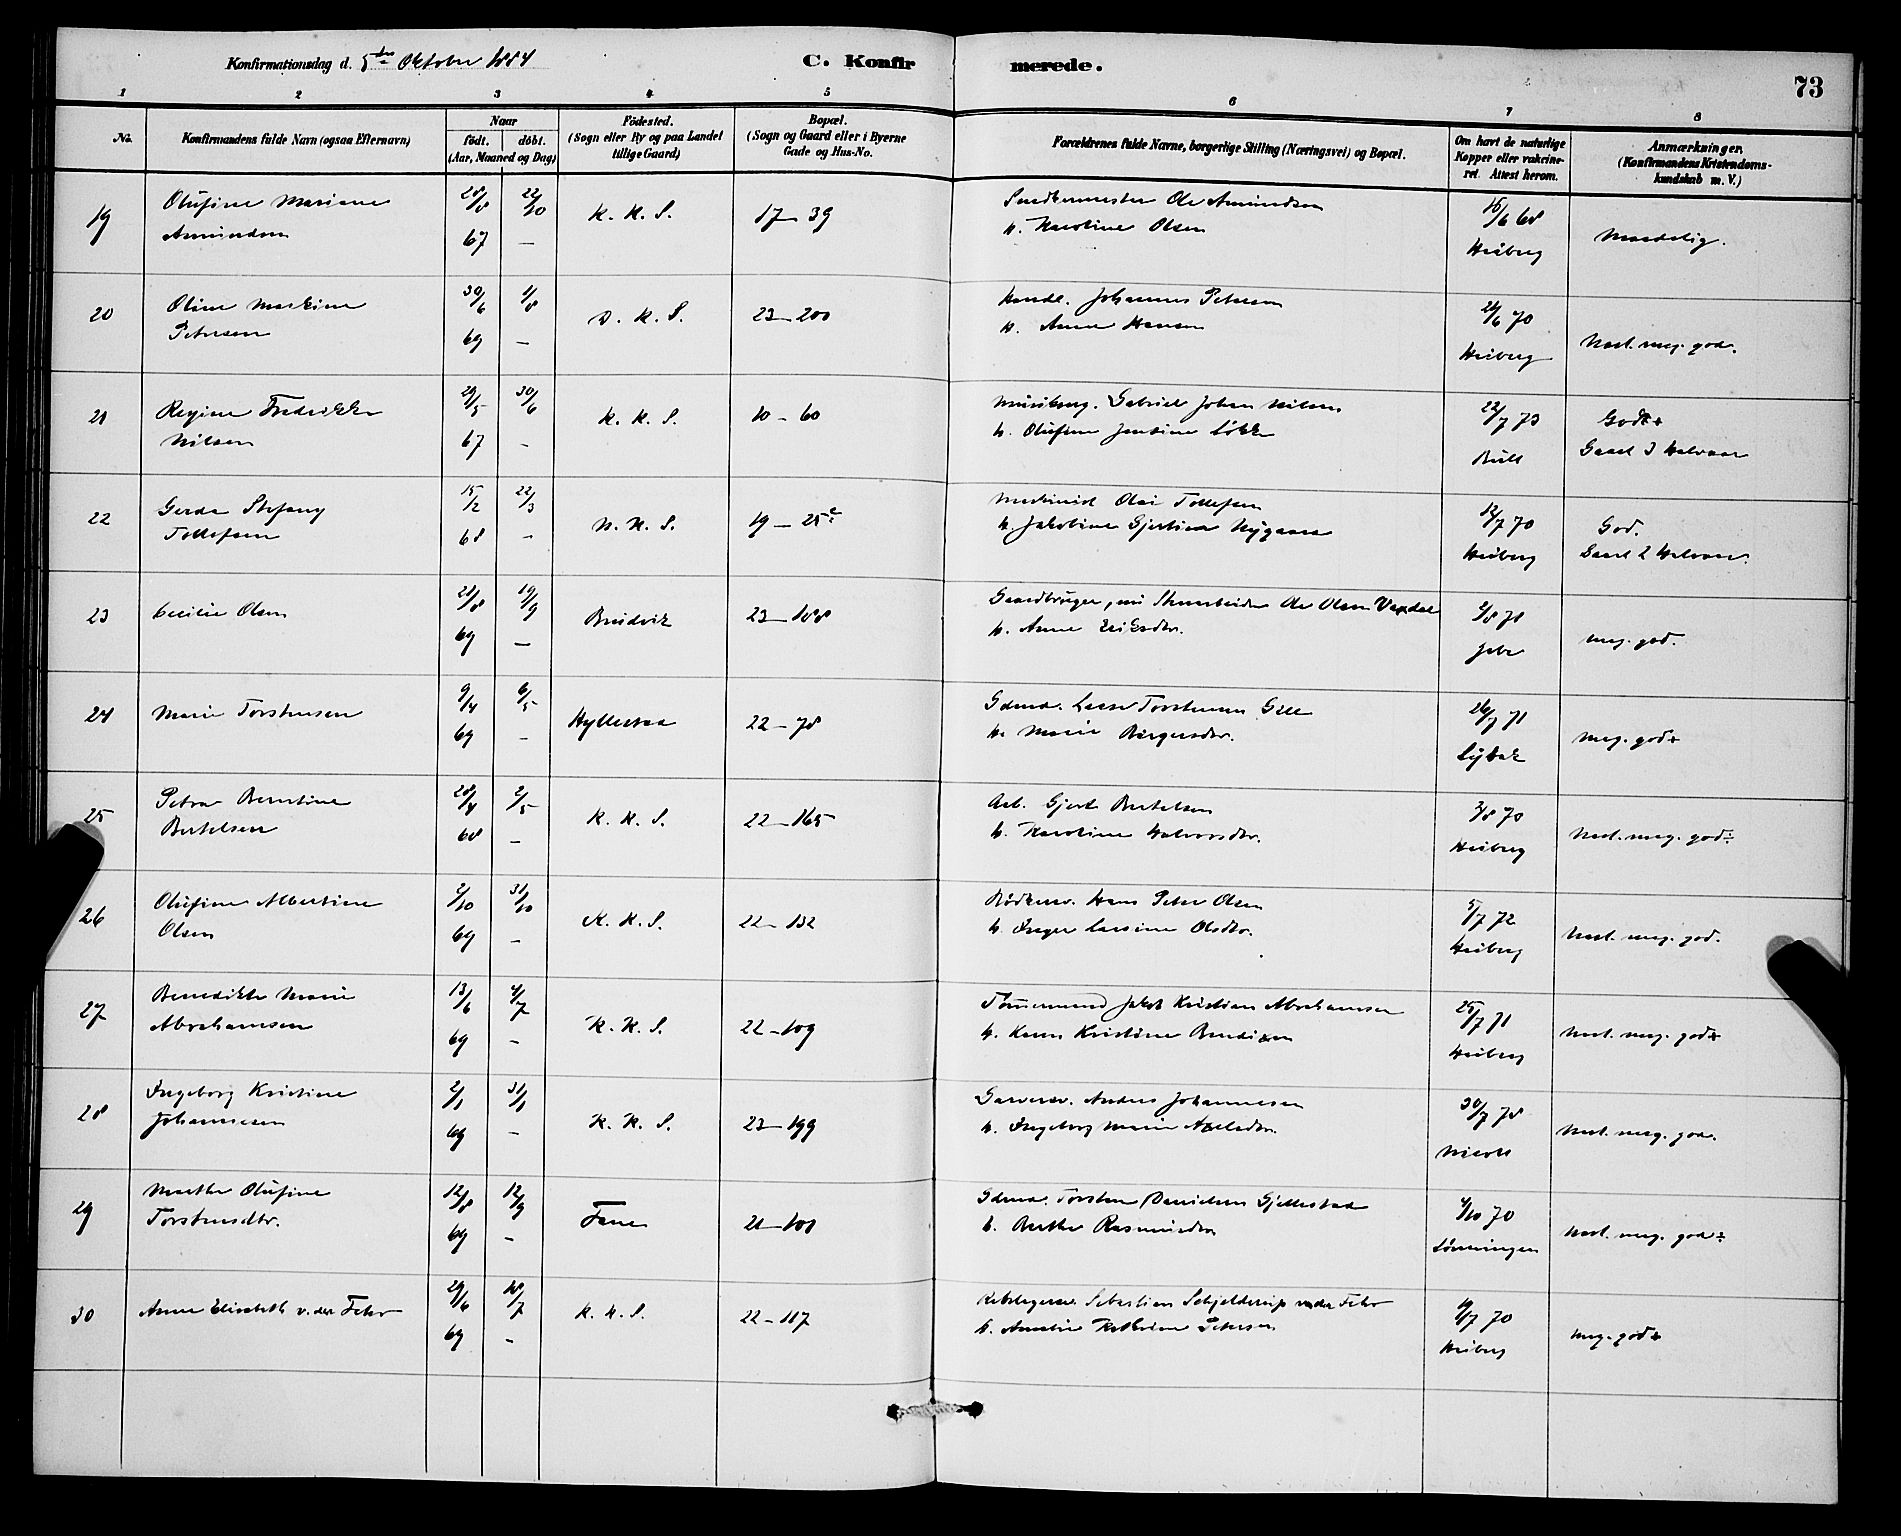 Konfirmationsdag d. 5te Oktober 1884 C. Konfirmerede. 73
1 2 3 4 5 6 7 8
No. Konfirmandens fulde Navn (ogsaa Efternavn) Naar födt. döbt. (Aar, Maaned og Dag) Födested. (Sogn eller By og paa Landet tillige Gaard) Bopæl. (Sogn og Gaard eller i Byerne Gade og Hus-No. Forældrenes fulde Navne, borgerlige Stilling (Næringsvei) og Bopæl. Om havt de naturlige Kopper eller vakcineret. Attest herom. Anmærkninger. (Konfirmandens Kristendomskundskab m. V.)
19 Olufine Mariane 28/8 22/10 K. K. S. 17 – 39 Snedkermester Ole Amundsen 15/6 68
Amundsen 67 – h. Karoline Olsen Heiberg Maadelig.
20 Oline Maskine 30/6 1/8 D. K. S. 23 – 200 Handl. Johannes Petersen 24/6 70
Petersen 69 – h. Anne Hansen Heiberg Næst. meg. god.
21 Regine Fredrikke 29/5 30/6 K. K. S. 10 – 60 Gabriel Johan Nilsen 22/7 73 God+
Nilsen 67 – h. Olufine Jentine Løkke Bull Gaael 3 Halvaar
22 Gerda Stefany 15/2 22/3 N. K. S. 19 – 25c Maskinist Olai Tollefsen 12/7 70 God.
Tollefsen 68 – h. Jakobine Gjertine Nygaard Heiberg Gaael 2 Halvaar.
23 Cecilie Olsen 21/8 19/9 Brudvik 23 – 188 Gaardbruger, nu Stenarbeider Ole Olsen Vaxdal 2/8 71
69 – h. Anne Eriksdtr. Jebe meg. god.
24 Marie Torstensen 9/4 6/5 Hyllestad 22 – 78 Gdmd. Lasse Torstensen Gill 26/7 71
69 – h. Marie Børgersdtr. Lybek meg. god+
25 Petra Berntine 28/4 2/5 K. K. S. 22 – 165 Arb. Gjert Bertelsen 2/8 70
Bertelsen 68 – h. Karoline Halvorsdtr. Heiberg Næst. meg. god÷
26 Olufine Albertine 2/10 31/10 K. K. S. 22 – 132 Bødkersv. Hans Peter Olsen 5/7 72
Olsen 69 – h. Inger Larsine Olsdtr. Heiberg Næst. meg. god.
27 Benedikte Marie 13/6 4/7 K. K. S. 22 – 109 Tømmermand Jakob Kristian Abrahamsen 25/7 71
Abrahamsen 69 – h. Karen Kristine Bendixen Heiberg Næst. meg. god+
28 Ingeborg Kristine 2/1 31/1 K. K. S. 23 – 199 Garversv. Anders Johannesen 30/7 78
Johannesen 69 – h. Ingeborg Marie Axelsdtr. Næst. meg. god.
29 Marthe Olufine 12/8 12/9 Fane 21 – 101 Gdmd. Torsten Danielsen Gjellestad 4/10 70
Torstensdtr. 69 – h. Berthe Rasmusdtr Lønningen Næst. meg. god÷
30 Anne Elisabeth v. der Fehr 29/6 18/7 K. K. S. 22 – 117 Rebslagersv. Sebastian Schjelderup v. der Fehr 19/7 70
69 – h. Amalie Kathrine Petersen Heiberg meg. god+